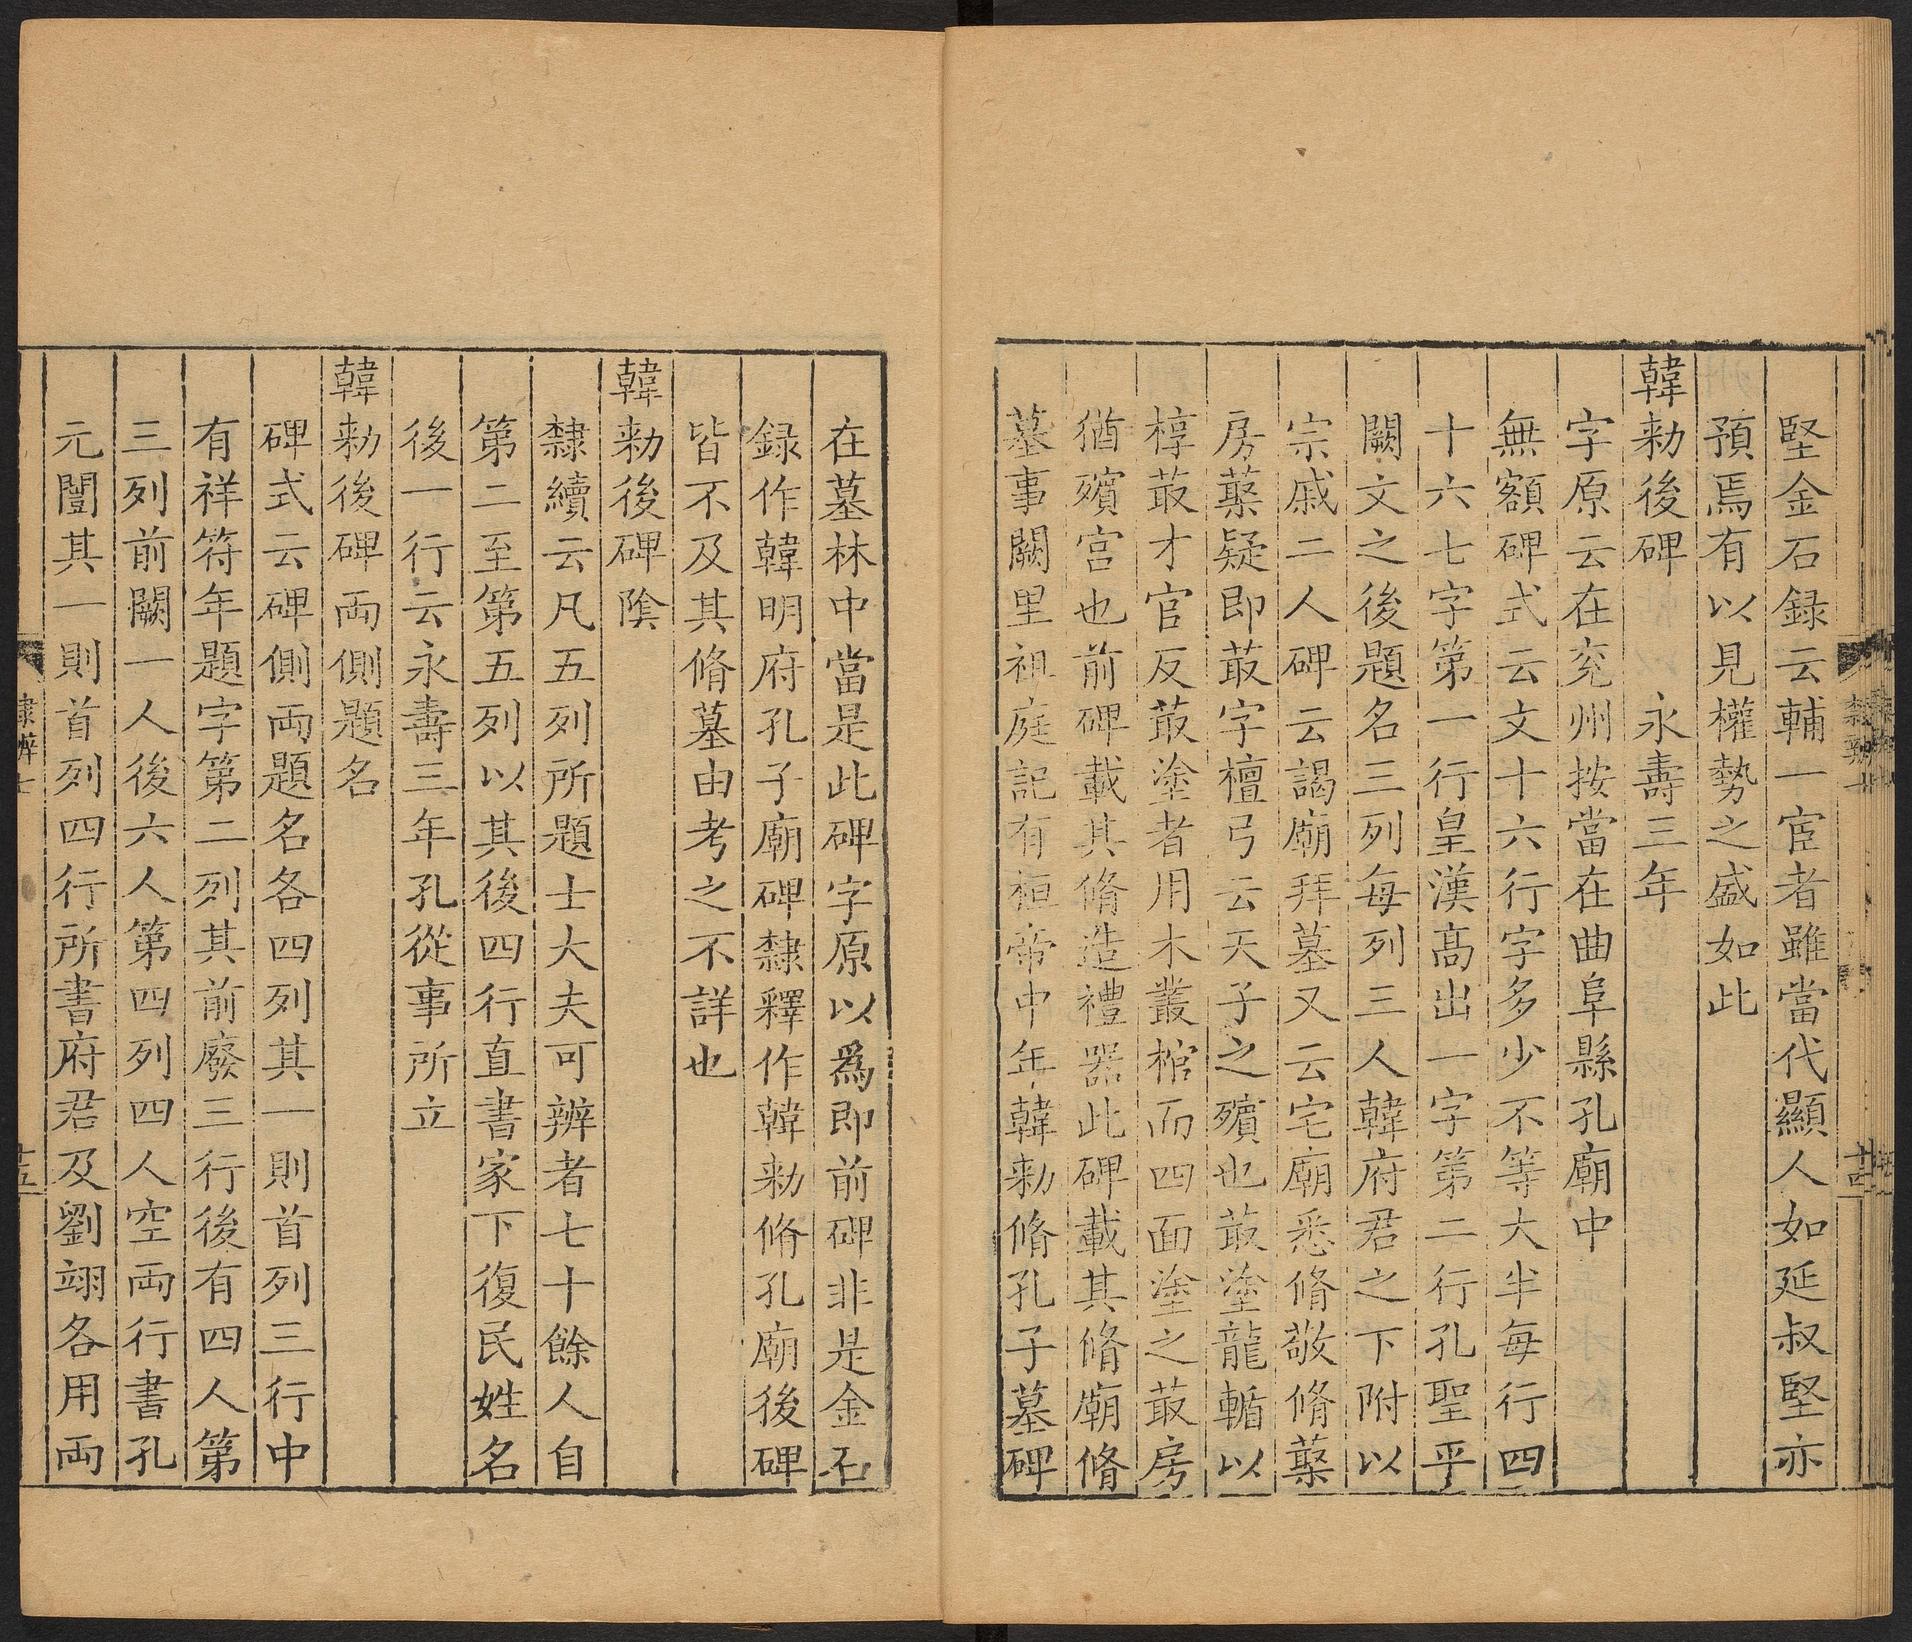 堅金石録云輔一宦者雖當代顯人如延叔堅亦
預焉有以見權勢之盛如此
韓勑後碑　永壽三年
字原云在兖州按當在曲阜縣孔廟中
無額碑式云文十六行字多少不等大半每行四
十六七字第一行皇漢髙出一字第二行孔聖乎
闕文之後題名三列每列三人韓府君之下附以
宗戚二人碑云謁廟拜墓又云宅廟悉脩敬脩
房疑即菆字檀弓云天子之殯也菆塗龍輴以
椁菆才官反菆塗者用木叢棺而四面塗之菆房
猶殯宫也前碑載其脩造禮器此碑載其脩廟脩
墓事闕里祖庭記有桓帝中年韓勑脩孔子墓碑
隸辨七
十四
在墓林中當是此碑字原以爲即前碑非是金石
録作韓明府孔子廟碑隸釋作韓勑脩孔廟後碑
皆不及其脩墓由考之不詳也
韓勑後碑陰
隸續云凡五列所題士大夫可辨者七十餘人自
第二至第五列以其後四行直書家下復民姓名
後一行云永壽三年孔從事所立
韓勑後碑両側題名
碑式云碑側両題名各四列其一則首列三行中
有祥符年題字第二列其前廢三行後有四人第
三列前闕一人後六人第四列四人空両行書孔
元誾其一則首列四行所書府君及劉翊各用両
隸辨七
十五